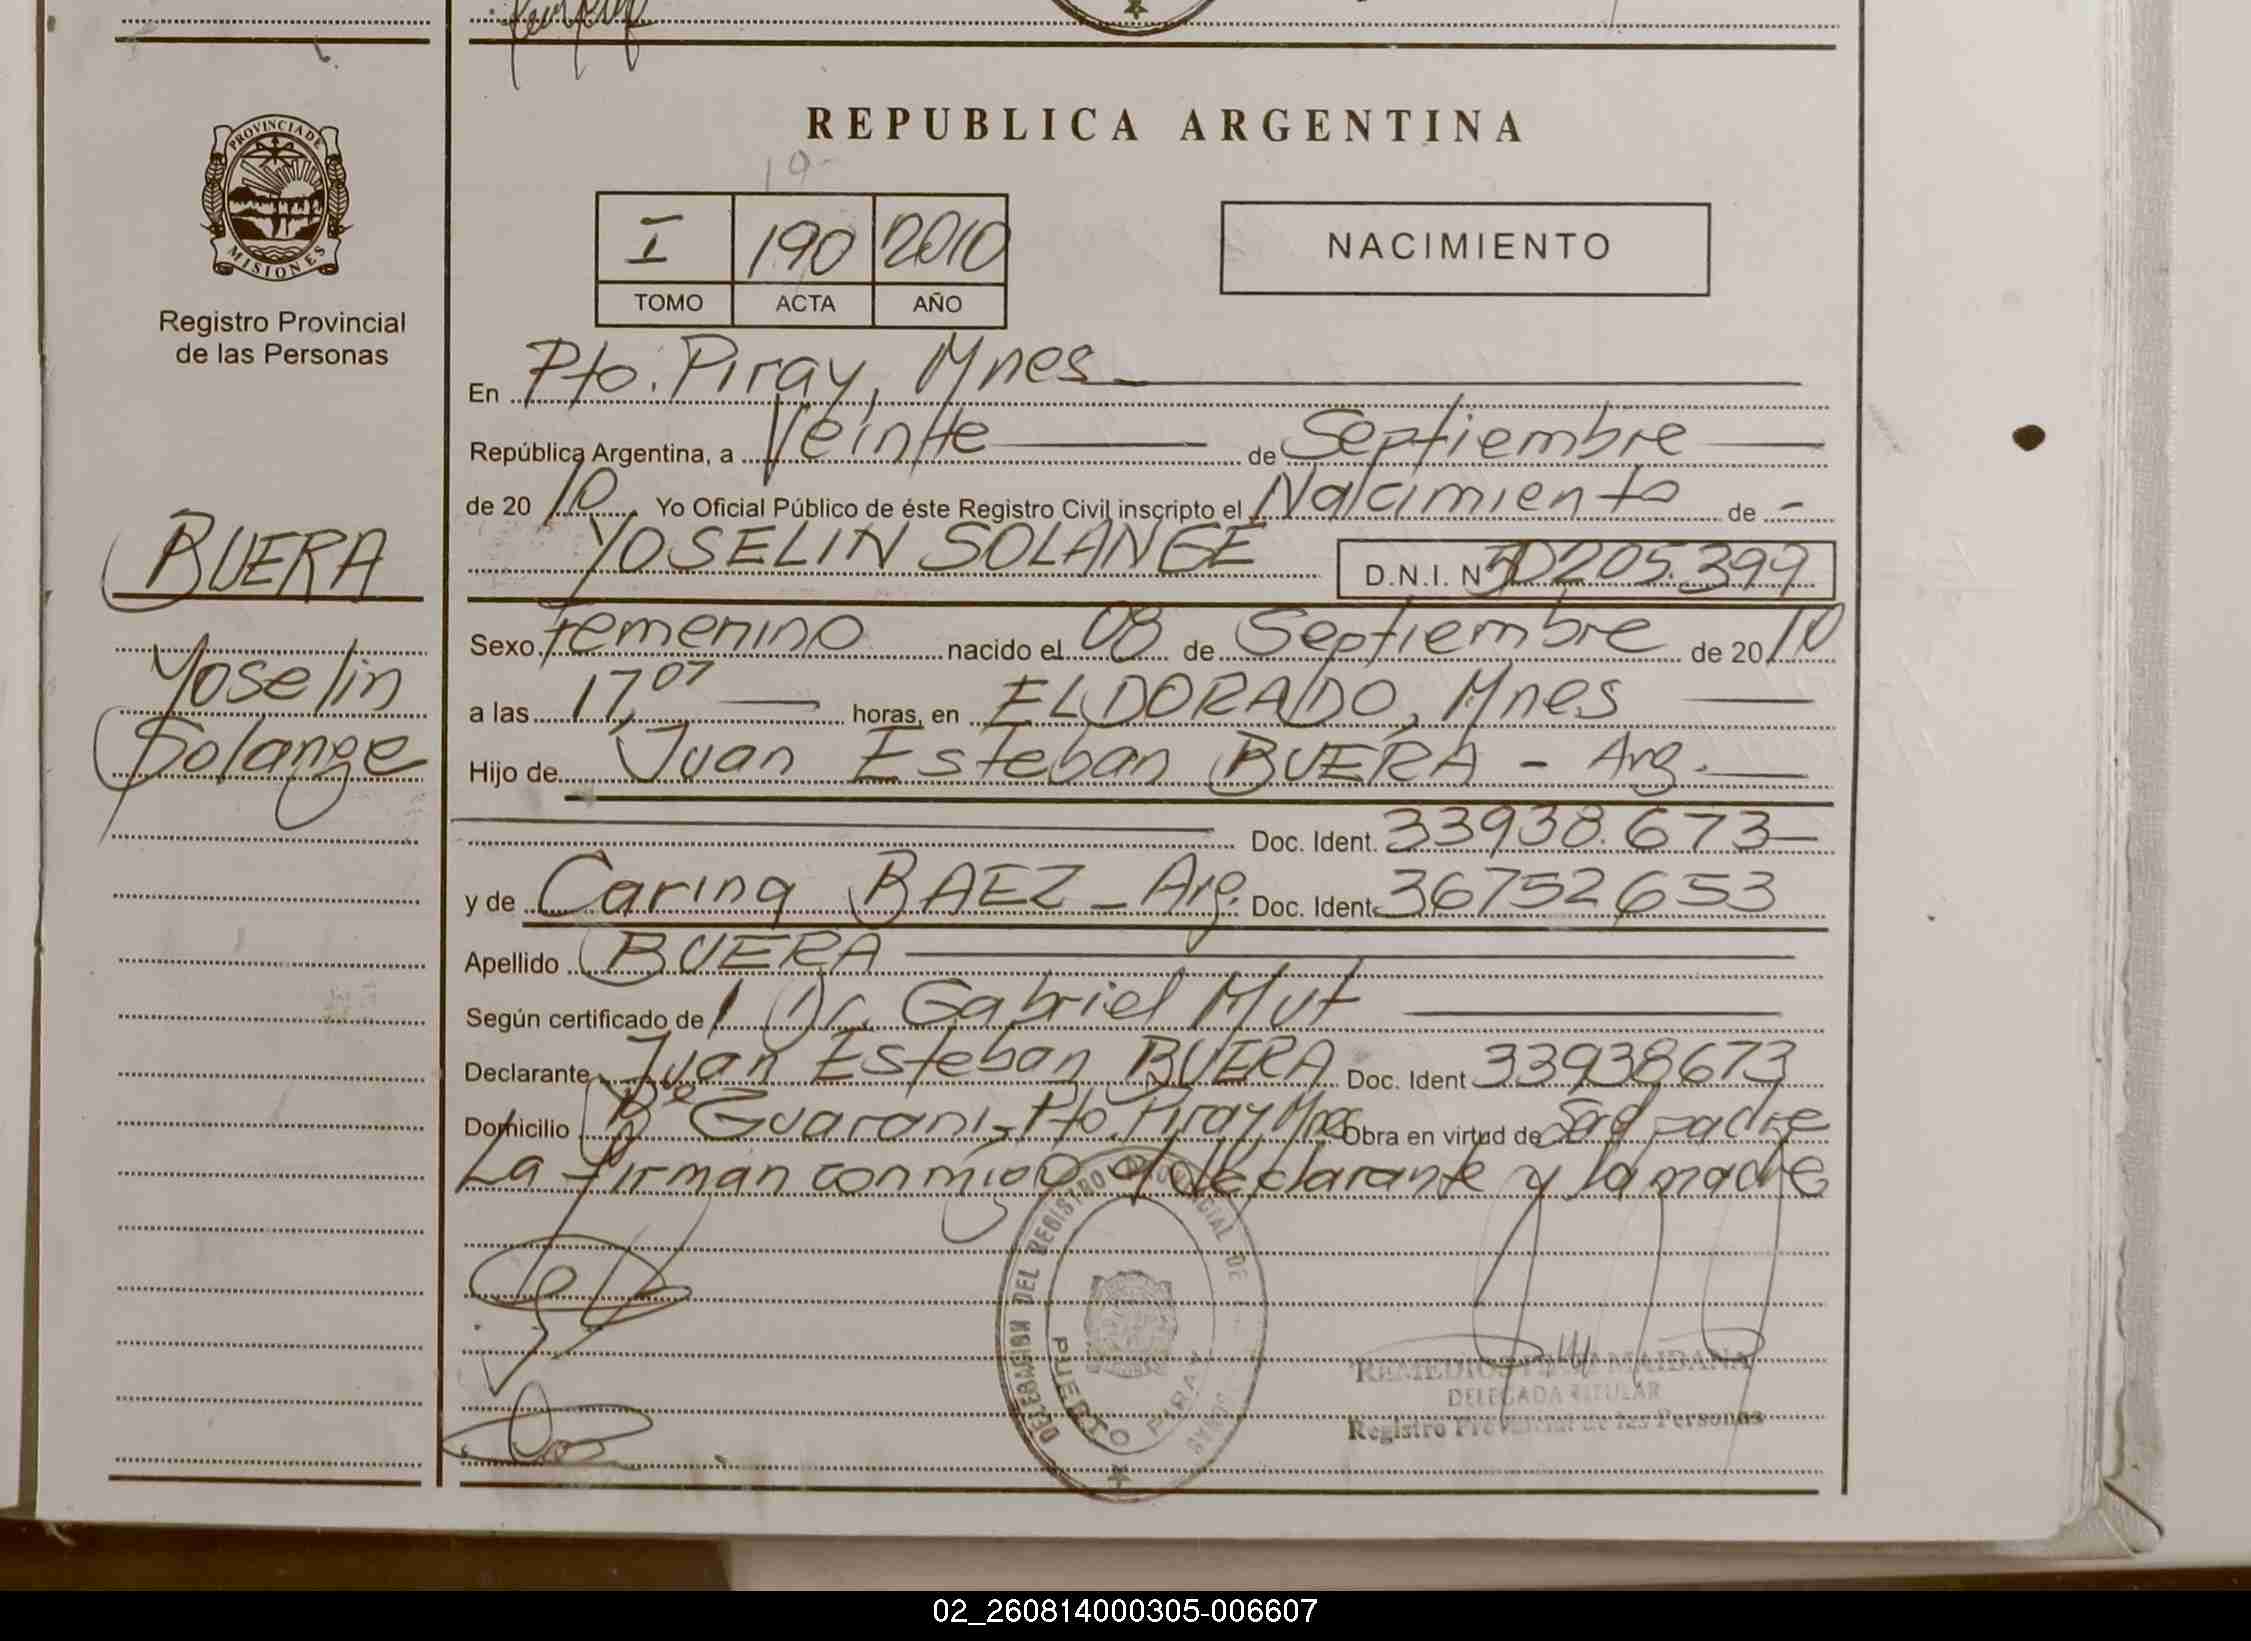 REPUBLICA ARGENTINA
PROVINCIA DE
MISIONES
Registro Provincial
de las Personas
19
I 190 2010
TOMO ACTA AÑO
NACIMIENTO
En Pto. Piray, Mnes
República Argentina, a Veinte de Septiembre
de 20 10 Yo Oficial Público de éste Registro Civil inscripto el Nacimiento de -
YOSELIN SOLANGE D.N.I. Nº 50205.399
BUERA
Yoselin
Solange
Sexo femenino nacido el 08 de Septiembre de 20 10
a las 17,07 horas, en ELDORADO, Mnes
Hijo de Juan Esteban BUERA - Arg.
Doc. Ident. 33938.673
y de Carina BAEZ - Arg. Doc. Ident. 36752653
Apellido BUERA
Según certificado de Dr. Gabriel Mut
Declarante Juan Esteban BUERA Doc. Ident 33938673
Domicilio Bº Guarani - Pto. Piray Mnes Obra en virtud de padre
La firman conmigo el declarante y la madre
DELEGACION DEL REGISTRO PROVINCIAL DE
PUERTO PIRAY
REMEDIOS MAIDANA
DELEGADA TITULAR
Registro Provincial de las Personas
02_260814000305-006607